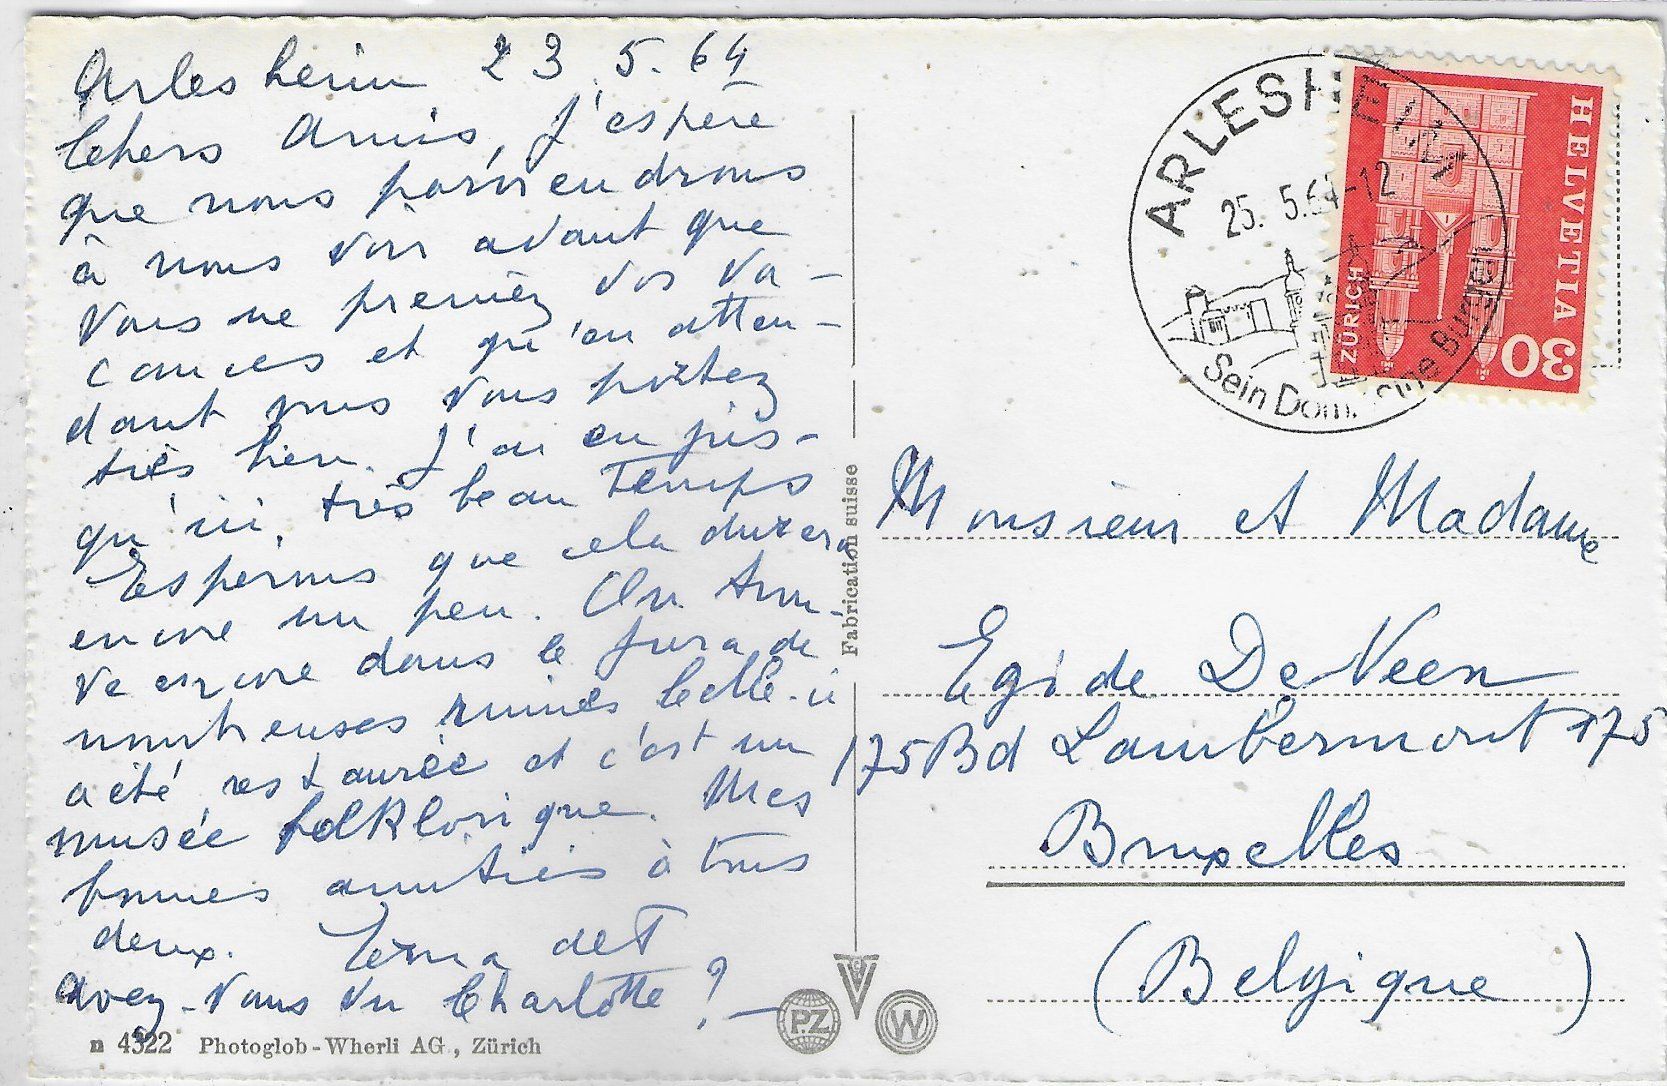 Arlesheim 23.5.64
Chers Amis, J'espère
que nous parviendrons
à nous voir avant que
Vous ne preniez vos va-
cances et qu'en atten-
dant vous vous portez
très bien. J'ai eu jus-
qu'ici, très beau temps
Espérons que cela durera
encore un peu. On trou-
ve encore dans le Jura de
nombreuses ruines celle-ci
a été restaurée et c'est un
musée folklorique. Mes
bonnes amitiés à tous
deux. Erna deT
Avez-vous vu Charlotte ?
n 4322 Photoglob-Wherli AG., Zürich
Fabrication suisse
PZ
W
ARLESHEIM
25. 5.64-12
Sein Dom.
HELVETIA
ZÜRICH
30
Monsieur et Madame
Egide DeVeen
175 Bd Lambermont 175
Bruxelles
(Belgique)